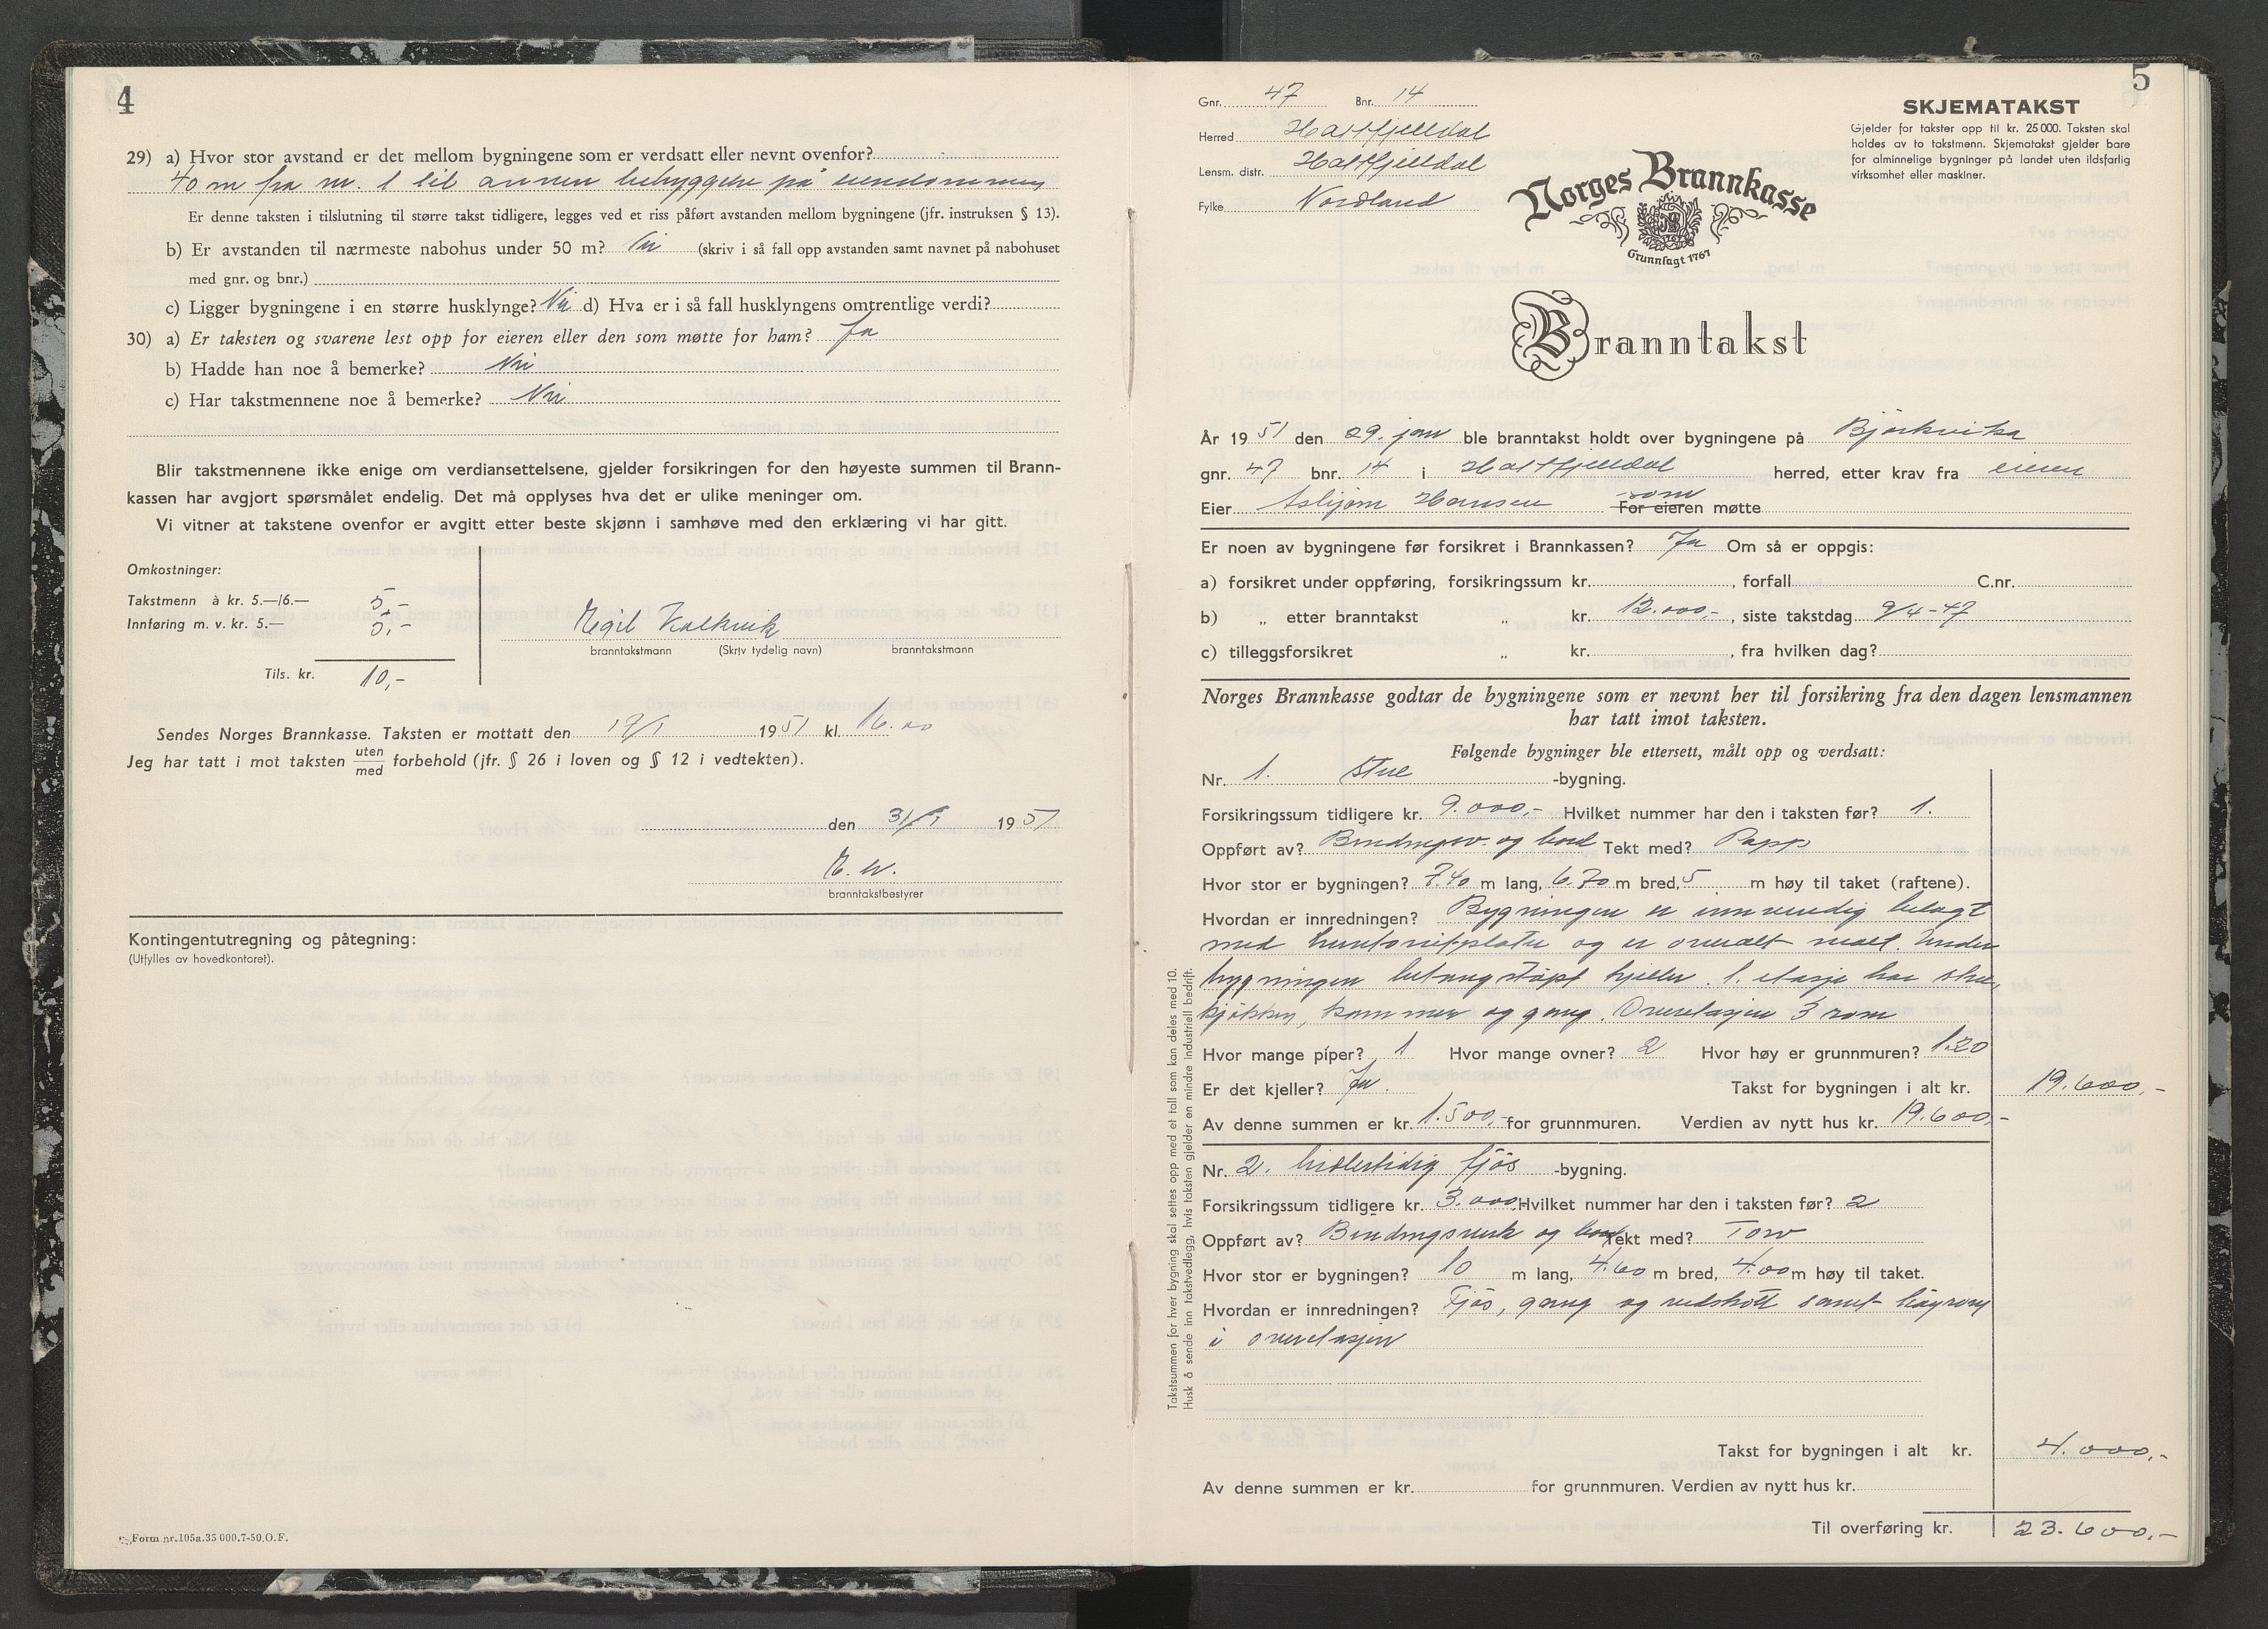 4
29) a) Hvor stor avstand er det mellom bygningene som er verdsatt eller nevnt ovenfor?
40 m fra nr. 1 til annen bebyggelse på eiendommen
Er denne taksten i tilslutning til større takst tidligere, legges ved et riss påført avstanden mellom bygningene (jfr. instruksen § 13).
b) Er avstanden til nærmeste nabohus under 50 m? Nei (skriv i så fall opp avstanden samt navnet på nabohuset
med gnr. og bnr.)
c) Ligger bygningene i en større husklynge? Nei d) Hva er i så fall husklyngens omtrentlige verdi?
30) a) Er taksten og svarene lest opp for eieren eller den som møtte for ham? Ja
b) Hadde han noe å bemerke? Nei
c) Har takstmennene noe å bemerke? Nei
Blir takstmennene ikke enige om verdiansettelsene, gjelder forsikringen for den høyeste summen til Brann-
kassen har avgjort spørsmålet endelig. Det må opplyses hva det er ulike meninger om.
Vi vitner at takstene ovenfor er avgitt etter beste skjønn i samhøve med den erklæring vi har gitt.
Omkostninger:
Takstmenn à kr. 5.—/6.— 5,-
Innføring m. v. kr. 5.— 5,-
Tils. kr. 10,-
Egil Kalkvik
branntakstmann (Skriv tydelig navn) branntakstmann
Sendes Norges Brannkasse. Taksten er mottatt den 17/1 1951 kl. 16.00
Jeg har tatt i mot taksten uten/med forbehold (jfr. § 26 i loven og § 12 i vedtekten).
den 31/1 1951
E. W.
branntakstbestyrer
Kontingentutregning og påtegning:
(Utfylles av hovedkontoret).
Form nr. 105a. 35 000. 7-50. O. F.
5
Gnr. 47 Bnr. 14
Herred Hattfjelldal
Lensm. distr. Hattfjelldal
Fylke Nordland
Norges Brannkasse
Grunnlagt 1767
SKJEMATAKST
Gjelder for takster opp til kr. 25 000. Taksten skal
holdes av to takstmenn. Skjematakst gjelder bare
før alminnelige bygninger på landet uten ildsfarlig
virksomhet eller maskiner.
Branntakst
År 1951 den 29. jan ble branntakst holdt over bygningene på Bjørkvika
gnr. 47 bnr. 14 i Hattfjelldal herred, etter krav fra eieren
Eier Asbjørn Hansen som For eieren møtte
Er noen av bygningene før forsikret i Brannkassen? Ja Om så er oppgis:
a) forsikret under oppføring, forsikringssum kr. , forfall C.nr.
b) „ etter branntakst „ kr. 12.000,- , siste takstdag 9/4-47
c) tilleggsforsikret „ kr. , fra hvilken dag?
Norges Brannkasse godtar de bygningene som er nevnt her til forsikring fra den dagen lensmannen
har tatt imot taksten.
Følgende bygninger ble ettersett, målt opp og verdsatt:
Nr. 1. Stue -bygning.
Forsikringssum tidligere kr. 9.000,- Hvilket nummer har den i taksten før? 1.
Oppført av? Bindingsv. og bord Tekt med? Papp
Hvor stor er bygningen? 7.40 m lang, 6.70 m bred, 5 m høy til taket (raftene).
Hvordan er innredningen? Bygningen er innvendig belagt
med huntonitplater og er overalt malt. Under
bygningen betongstøpt kjeller. 1. etasje har stue,
kjøkken, kammer og gang. Overetasjen 3 rom
Hvor mange piper? 1 Hvor mange ovner? 2 Hvor høy er grunnmuren? 1.20
Er det kjeller? Ja. Takst for bygningen i alt kr. 19.600,-
Av denne summen er kr. 1.500,- for grunnmuren. Verdien av nytt hus kr. 19.600,-
Nr. 2. midlertidig fjøs -bygning.
Forsikringssum tidligere kr. 3.000 Hvilket nummer har den i taksten før? 2
Oppført av? Bindingsverk og bord Tekt med? Torv
Hvor stor er bygningen? 10 m lang, 4.60 m bred, 4.00 m høy til taket.
Hvordan er innredningen? Fjøs, gang og vedskott samt høyrom
i overetasjen
Takst for bygningen i alt kr. 4.000,-
Av denne summen er kr. for grunnmuren. Verdien av nytt hus kr.
Til overføring kr. 23.600,-
Takstsummen for hver bygning skal settes opp med et tall som kan deles med 10.
Husk å sende inn takstvedlegg, hvis taksten gjelder en mindre industriell bedrift.